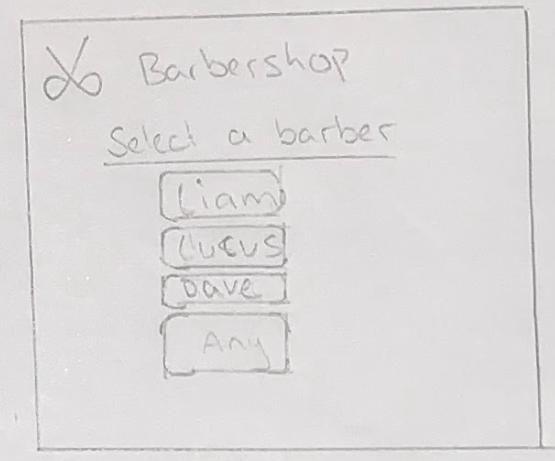 Barbershop
Select a barber
Liam
Lucus
Dave
Any